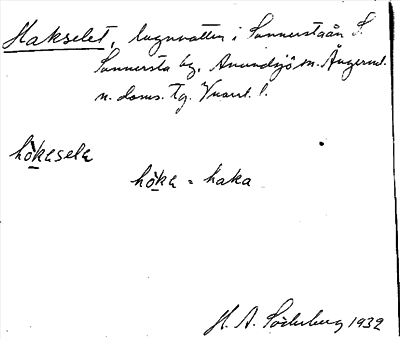 Hakselet, lugnvatten i Sunnerstaån S.
Sunnersta by, Anundsjö sn. Ångerml.
n. doms. tg.
hòkasela
hòka = haka
H. A. Söderberg 1932